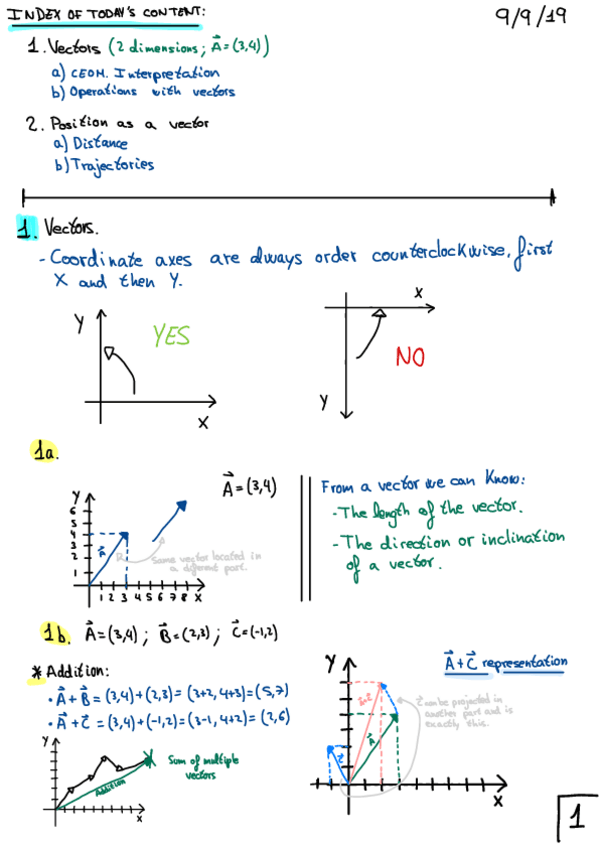 INDEX OF TODAY'S CONTENT:
9/9/19
1. Vectors (2 dimensions; A⃗=(3,4))
a) GEOM. Interpretation
b) Operations with vectors
2. Position as a vector
a) Distance
b) Trajectories
1. Vectors.
- Coordinate axes are always order counterclockwise, first
X and then Y.
Y
YES
X
X
NO
Y
1a.
A⃗=(3,4)
Y
6
5
4
3
2
1
A⃗
1 2 3 4 5 6 7 8 X
Same vector located in
a different part.
From a vector we can know:
- The length of the vector.
- The direction or inclination
of a vector.
1b. A⃗=(3,4); B⃗=(2,3); C⃗=(-1,2)
* Addition:
• A⃗+B⃗=(3,4)+(2,3)=(3+2,4+3)=(5,7)
• A⃗+C⃗=(3,4)+(-1,2)=(3-1,4+2)=(2,6)
Y
Addition
X
Sum of multiple
vectors
Y
A⃗+C⃗ representation
A⃗+C⃗
C⃗ can be projected in
another part and is
exactly this.
A⃗
C⃗
X
1